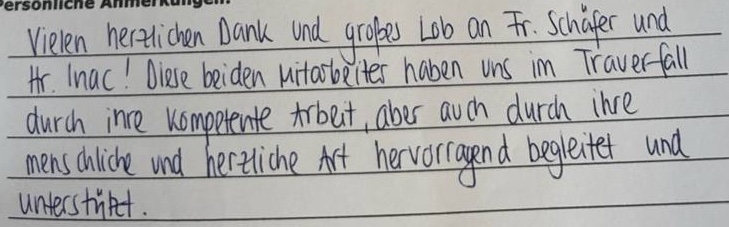 Persönliche Anmerkungen:
Vielen herzlichen Dank und großes Lob an Fr. Schäfer und
Hr. Inac! Diese beiden Mitarbeiter haben uns im Trauerfall
durch ihre kompetente Arbeit, aber auch durch ihre
menschliche und herzliche Art hervorragend begleitet und
unterstützt.